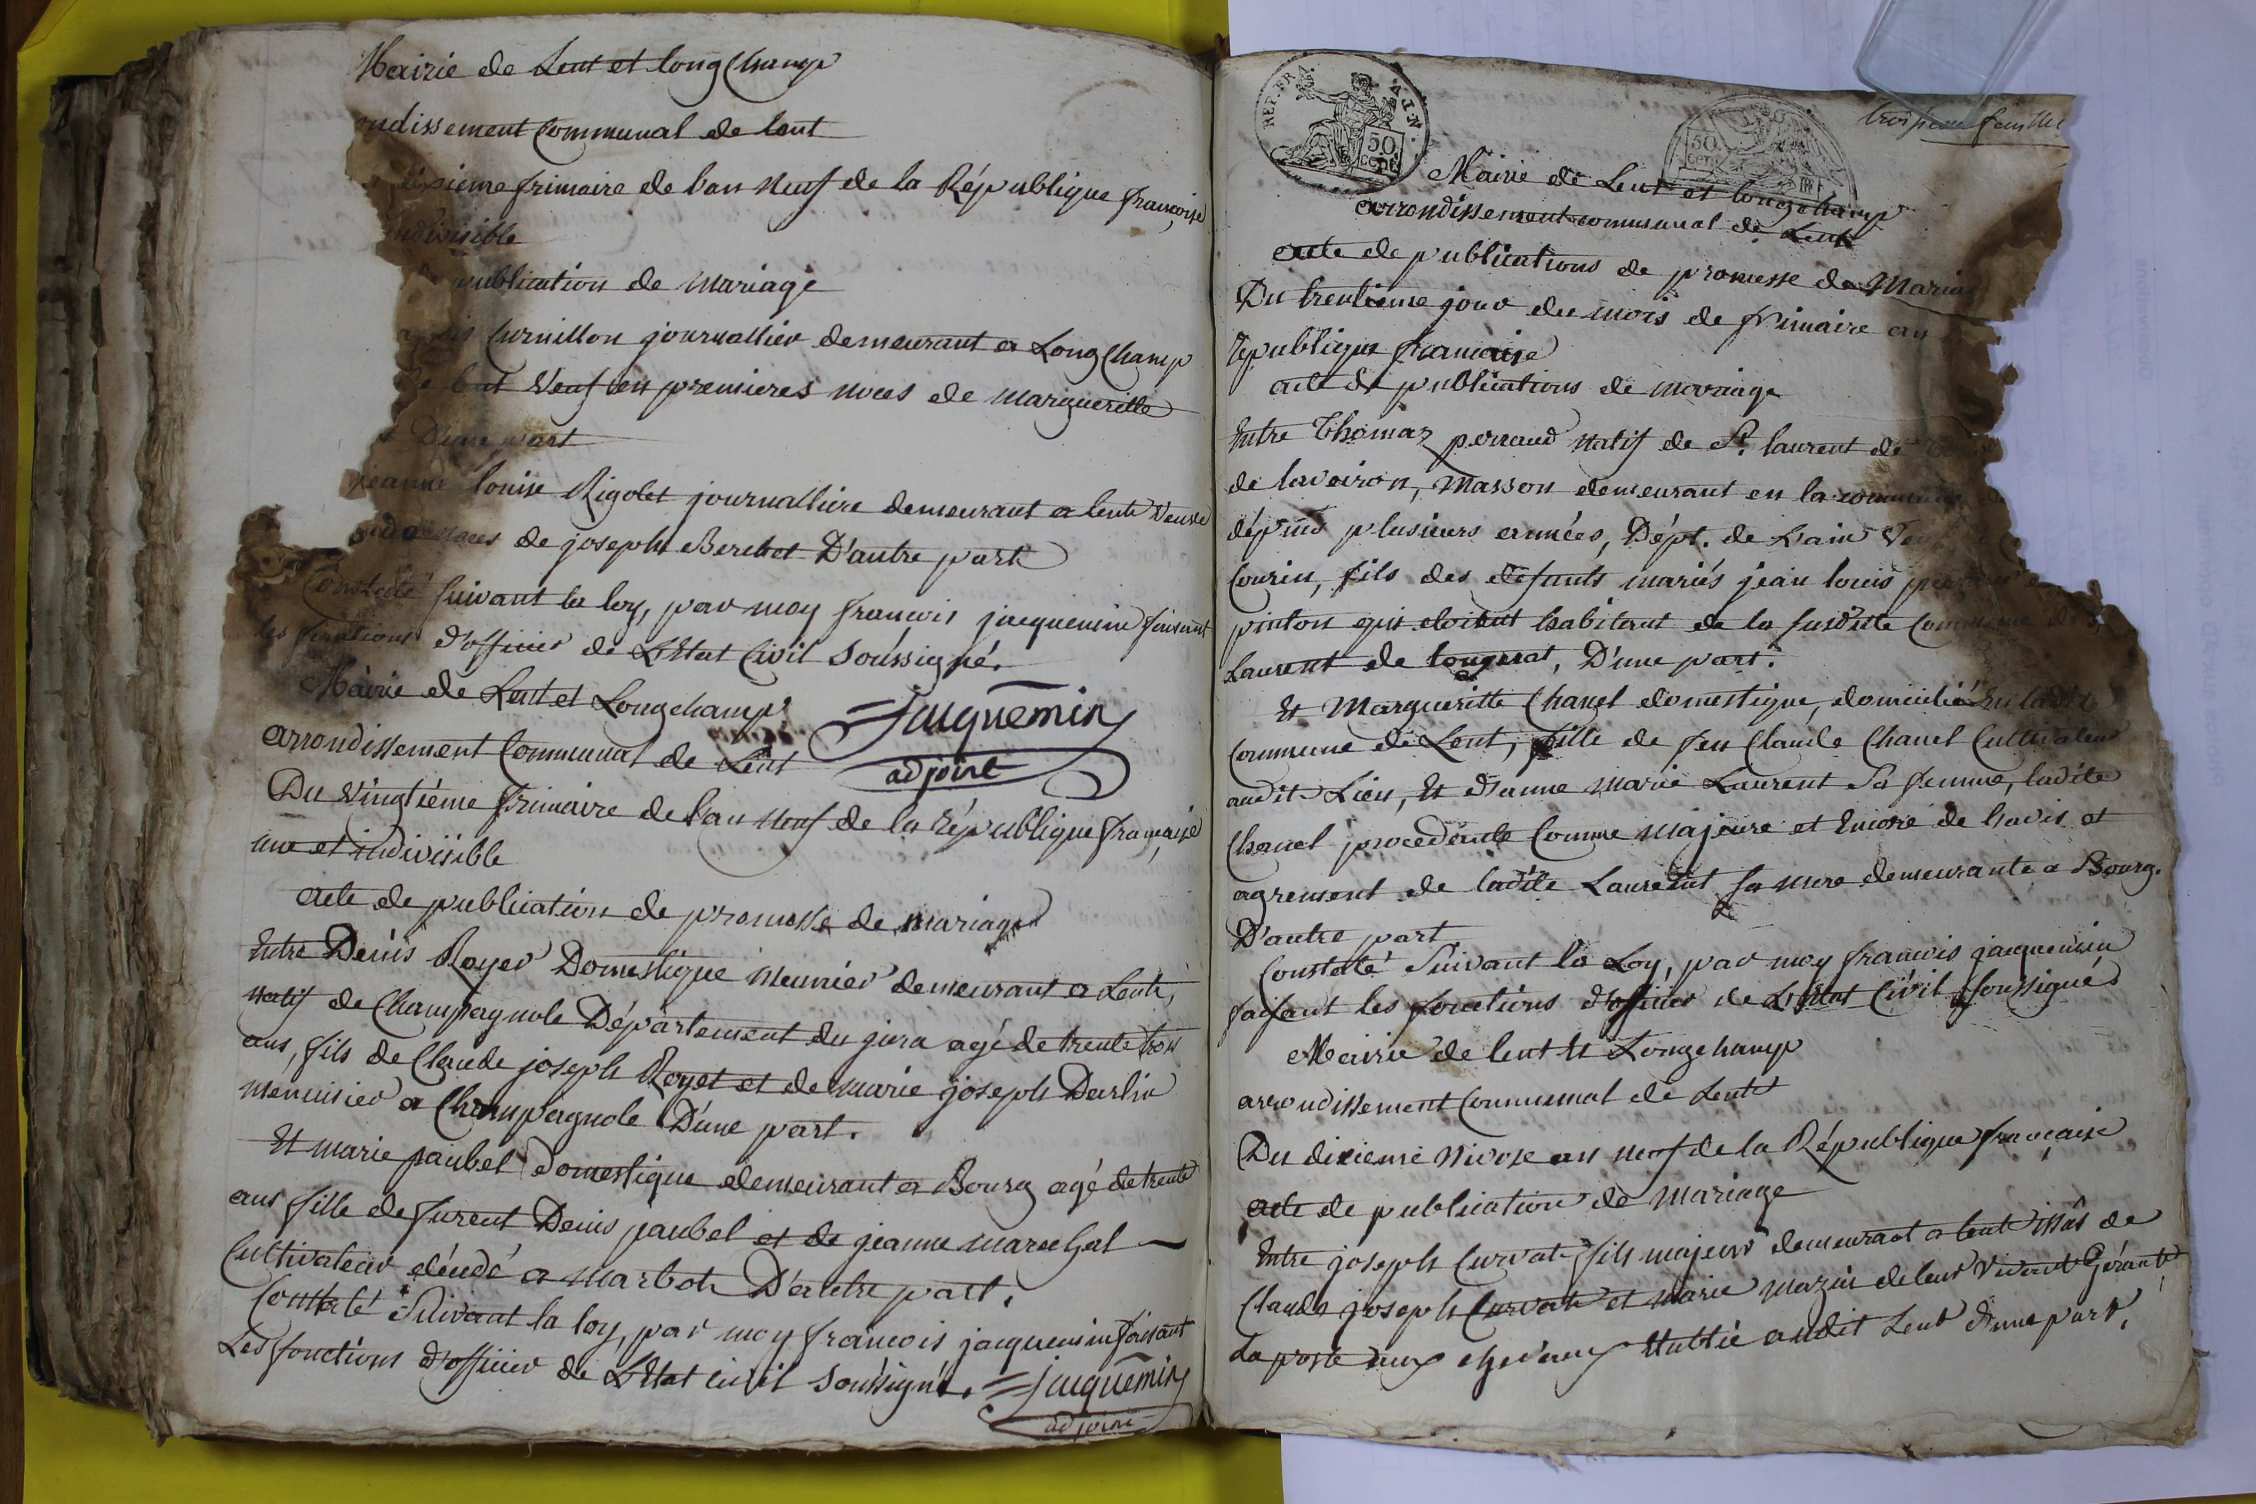 Mairie de Lent et long Champ
ondissement Communal de lent
ixieme frimaire de l'an Neuf de la République françoise
indivisible
publication de Mariage
Curnillon journallier demeurant a Long Champ
Veuf en premieres noces de margueritte
D'une part
jeanne louise Rigolet journalliere demeurant a lent Veuve
noces de joseph Berthet D'autre part
Constaté suivant la loy, par moy francois jacquemin faisant
les fonctions d'officier de L'Etat Civil Soussigné.
Jacquemin
adjoint
Mairie de Lent et Longchamp
arrondissement Communal de Lent
Du Vingtiéme frimaire de l'an neuf de la République française
une et indivisible
acte de publication de promesse de mariage
Entre Denis Royer Domestique Meunier demeurant a Lent,
natif de Champagnole Département du jura agé de trente trois
ans, fils de Claude joseph Royet et de marie joseph Darlin
menuisier a Champagnole D'une part.
Et marie paubel domestique demeurant a Bourg agé de trente
ans fille de furent Denis paubel et de jeanne marechal
Cultivateur décédé a marboz D'autre part.
Constaté Suivant la loy, par moy francois jacquemin faisant
Les fonctions d'officier de L'Etat civil Soussigné.
Jacquemin
adjoint
REP. FRA.
50
cent
50
cent
troisieme feuillet
Mairie de Lent et Longchamp
arrondissement communal de Lent
acte de publications de promesse de Maria
Du trentieme jour du mois de frimaire an
République française
acte de publications de mariage
Entre Thomas perraud Natif de St. laurent de
de laveiron, Masson demeurant en la commune
dépuis plusieurs années, Dépt. de L'ain
Courin, fils des défunts mariés jean louis
pinton qui étoient habitant de la susditte Commune de St
Laurent de , D'une part.
Et Margueritte Chanel domestique, domiciliée En ladite
Commune de Lent, fille de feu Claude Chanel Cultivateur
audit Lieu, Et d'anne Marie Laurent Sa femme, ladite
Chanel procedante Comme Majeure et Encore de lavis et
agrement de ladite Laurent sa mere demeurante a Bourg.
D'autre part
Constaté Suivant la Loy, par moy francois jacquemin
faisant les fonctions d'officier de L'Etat Civil soussigné
Mairie de lent Et Longchamp
arrondissement Communal de Lent
Du dixieme Nivose an neuf de la République française
acte de publication de Mariage
Entre joseph Curvat fils majeur demeurant a lent issus de
Claude joseph Curvat et Marie Mazuir de leur Vivant Gérante
La poste aux chevaux Etablie audit Lent d'une part,